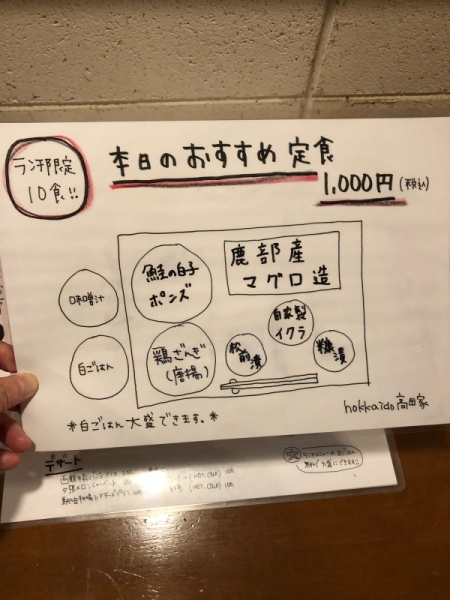 ランチ限定
10食!!
本日のおすすめ定食
1,000円(税込)
鮭の白子
ポンズ
鹿部産
マグロ造
味噌汁
自家製
イクラ
白ごはん
鶏ざんぎ
(唐揚)
松前漬
糠漬
*白ごはん大盛できます。*
hokkaido高田家
デザート